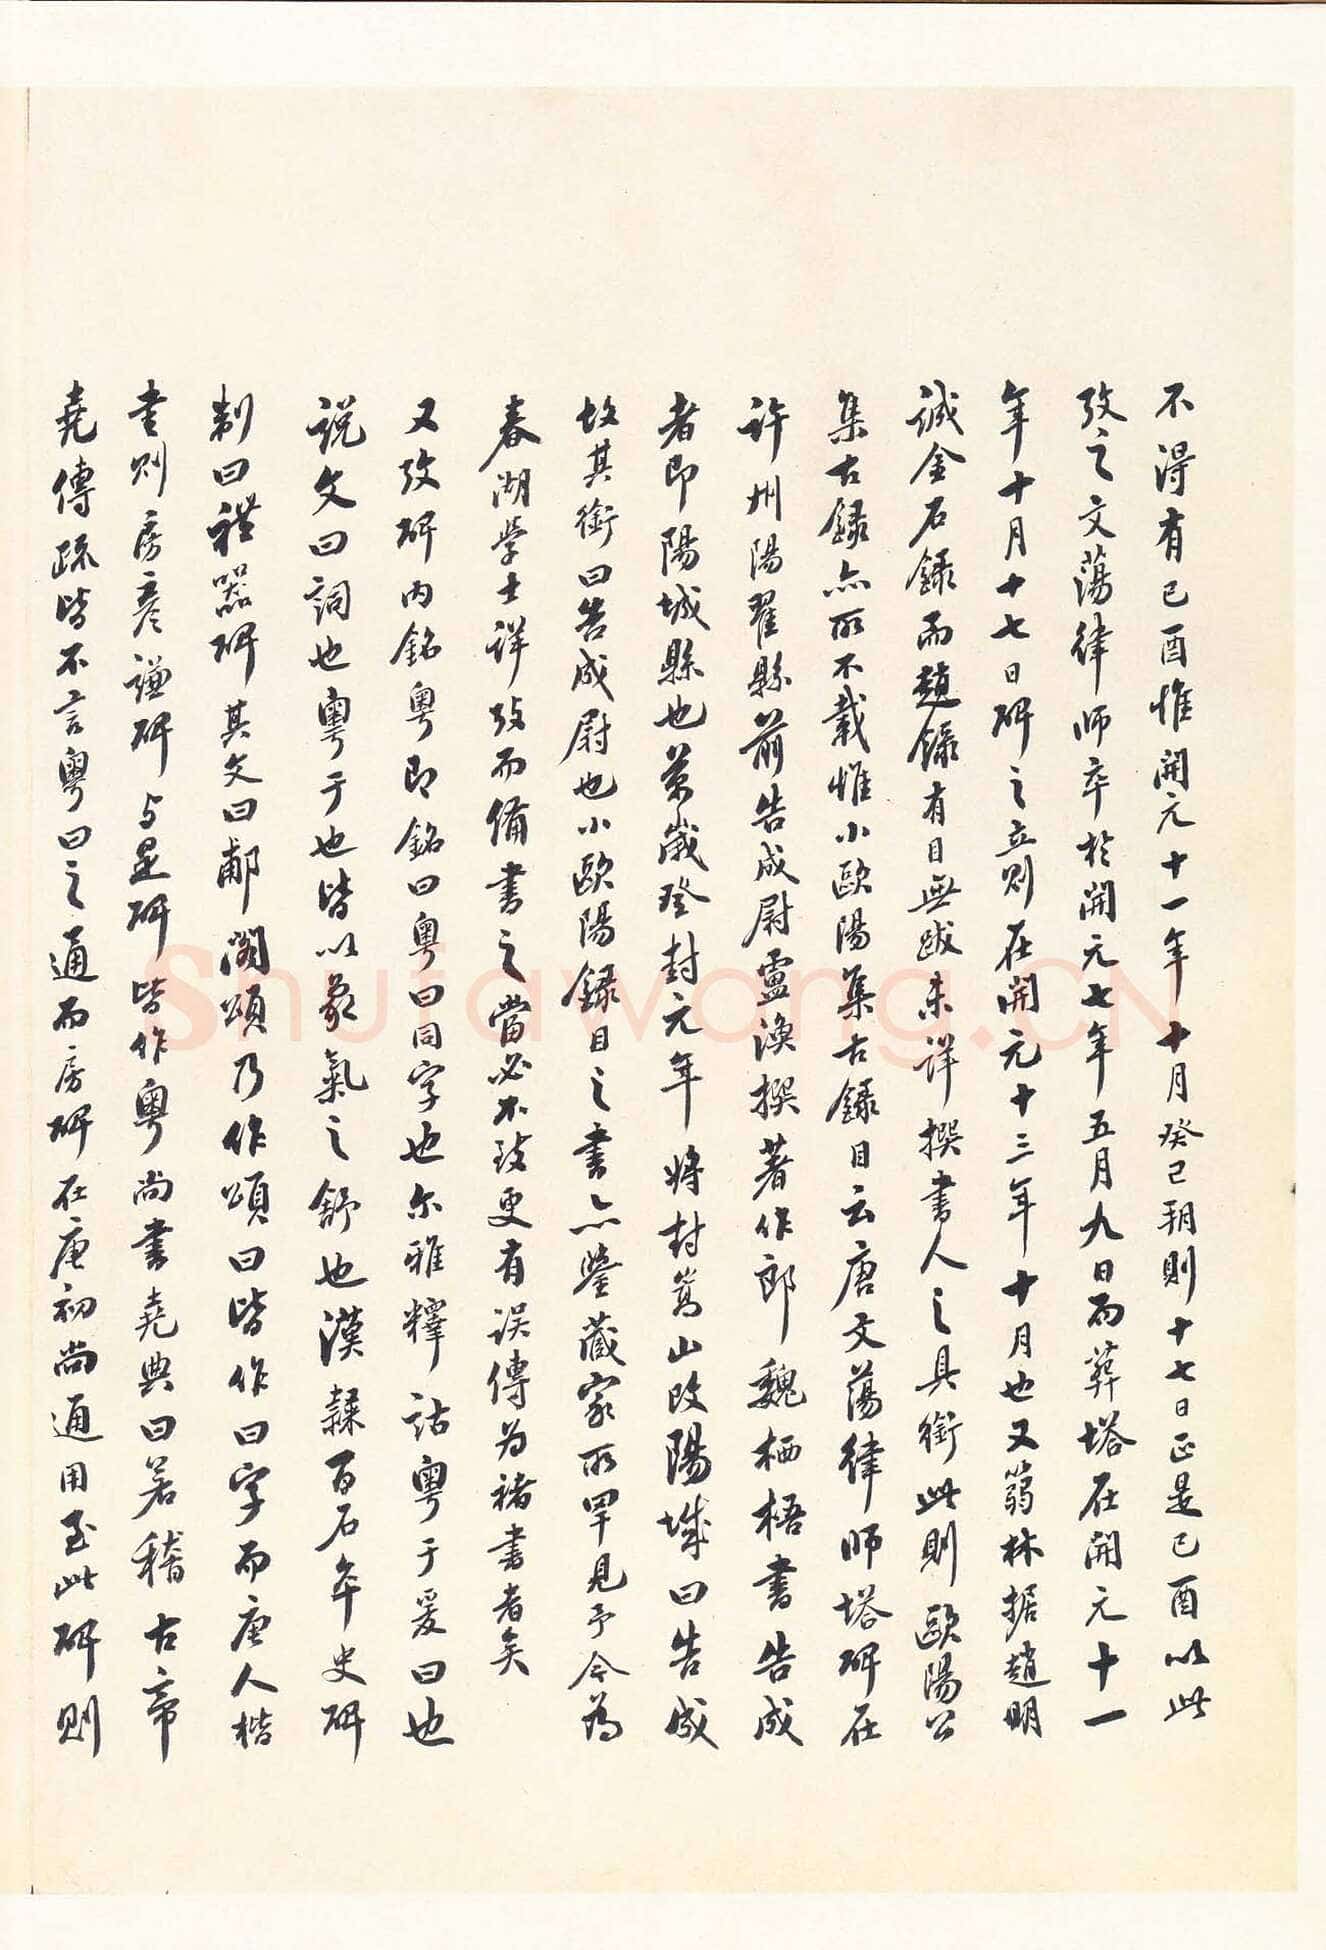 不得有己酉惟開元十一年十月癸巳朔則十七日正是己酉以此
攷之文蕩律師卒於開元七年五月九日而葬塔在開元十一
年十月十七日碑之立則在開元十三年十月也又蒻林据趙明
誠金石錄而趙錄有目無跋未詳撰書人之具銜此則歐陽公
集古錄亦所不載惟小歐陽集古錄目云唐文蕩律師塔碑在
許州陽翟縣前告成尉盧渙撰著作郎魏栖梧書告成
者即陽城縣也萬歲登封元年將封嵩山改陽城曰告成
故其銜曰告成尉也小歐陽錄目之書亦鑒藏家所罕見予今為
春湖學士詳攷而備書之當必不致更有誤傳為褚書者矣
又攷碑內銘粵即銘曰粵曰同字也尔雅釋詁粵于爰曰也
說文曰詞也粵于也皆以象氣之舒也漢隸百石卒史碑
制曰禮器碑其文曰郙閣頌乃作頌曰皆作曰字而唐人楷
書則房彥謙碑与是碑皆作粵尚書堯典曰若稽古帝
堯傳疏皆不言粵曰之通而房碑在唐初尚通用至此碑則
Shufawang.CN